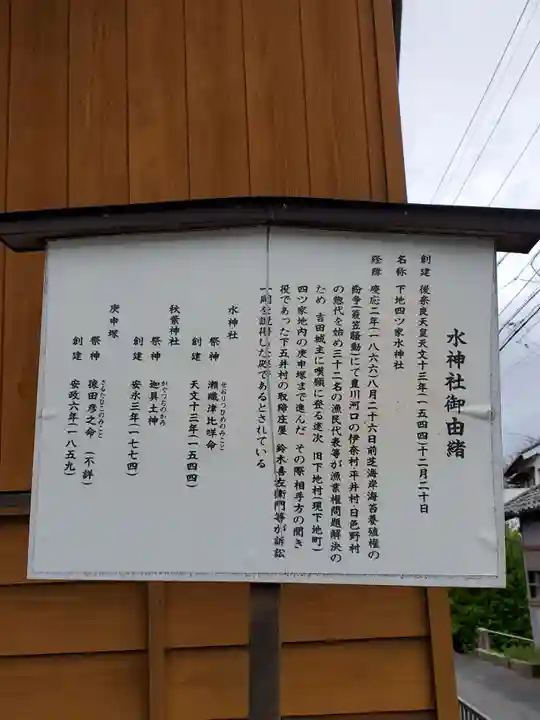 水神社御由緒
創建 後奈良天皇天文十三年(一五四四)十二月二十日
名称 下地四ツ家水神社
経緯 慶応二年(一八六六)八月二十六日前芝海岸海苔養殖権の
紛争(蓑笠騒動)にて豊川河口の伊奈村平井村日色野村
の惣代を始め三十二名の漁民代表等が漁業権問題解決の
ため 吉田城主に嘆願に登る途次 旧下地村(現下地町)
四ツ家地内の庚申塚まで進んだ その際 相手方の聞き
役であった下五井村の取締庄屋 鈴木喜左衛門等が訴訟
一同を説得した処であるとされている
水神社
祭神 瀬織津比咩命
せおりつひめのみこと
創建 天文十三年(一五四四)
秋葉神社
祭神 迦具土神
かぐつちのかみ
創建 安永三年(一七七四)
庚申塚
祭神 猿田彦之命 (不詳)
さるたひこのみこと
創建 安政六年(一八五九)